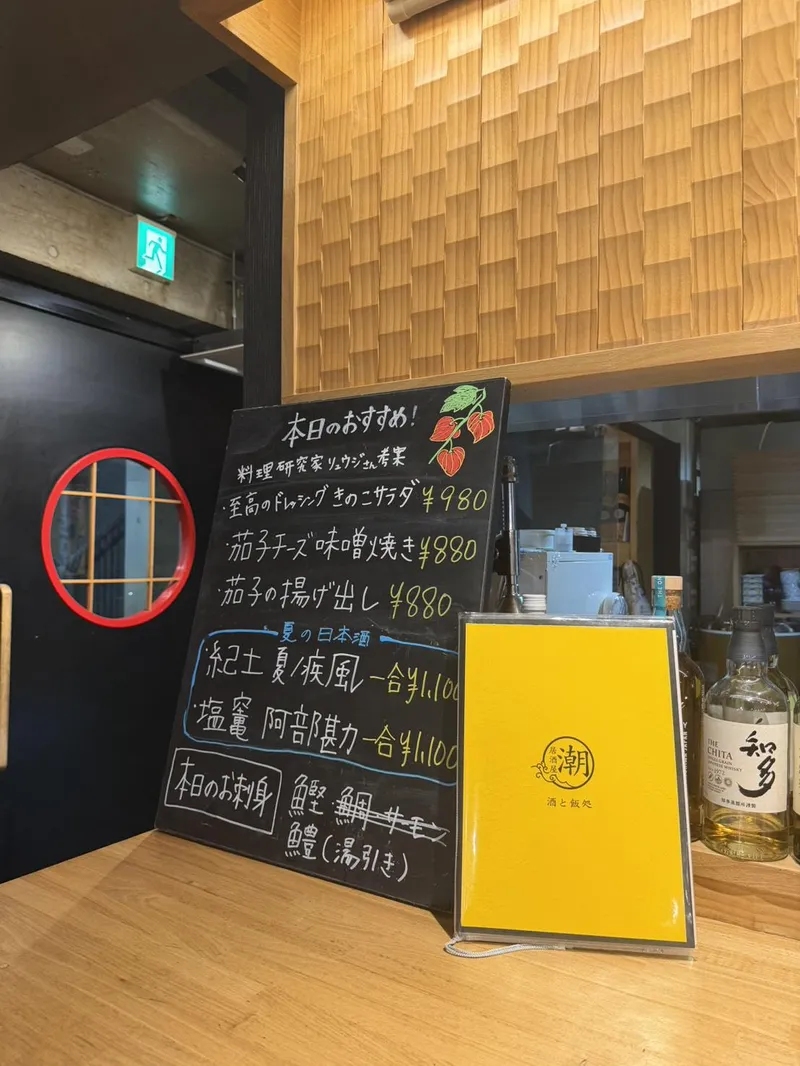 本日のおすすめ!
料理研究家リュウジさん考案
・至高のドレッシングきのこサラダ ¥980
・茄子チーズ味噌焼き ¥880
・茄子の揚げ出し ¥880
夏の日本酒
・紀土 夏ノ疾風 一合¥1,100
・塩竈 阿部勘 一合¥1,100
本日のお刺身
鰹 鯛 サーモン
鱧(湯引き)
居酒屋
潮
酒と飯処
THE CHITA
知多